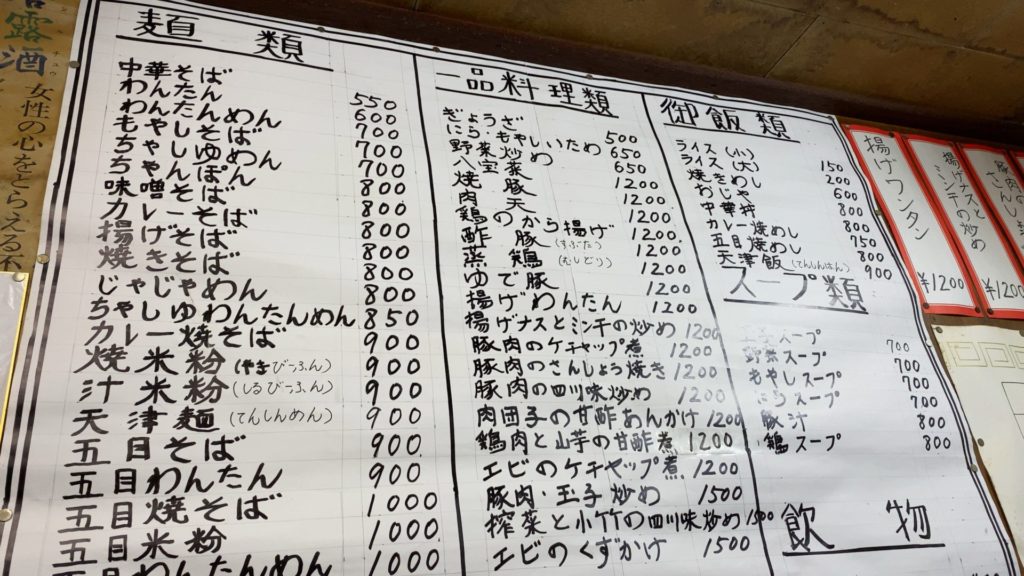 露酒
女性の心をとらえる不
麺類
中華そば 550
わんたん 600
わんたんめん 700
もやしそば 700
ちゃしゆめん 800
ちゃんぽん 800
味噌そば 800
カレーそば 800
揚げそば 800
焼きそば 800
じゃじゃめん 850
ちゃしゆわんたんめん 900
カレー焼そば 900
焼米粉(やきびーふん) 900
汁米粉(しるびーふん) 900
天津麺(てんしんめん) 900
五目そば 900
五目わんたん 1000
五目焼そば 1000
五目米粉 1000
五目わんたんめん
一品料理類
ぎょうざ 500
にら・もやしいため 650
野菜炒め 650
八宝菜 1200
焼豚 1200
肉天 1200
鶏のから揚げ 1200
酢豚(すぶた) 1200
蒸鶏(むしどり) 1200
ゆで豚 1200
揚げわんたん 1200
揚げナスとミンチの炒め 1200
豚肉のケチャップ煮 1200
豚肉のさんしょう焼き 1200
豚肉の四川味炒め 1200
肉団子の甘酢あんかけ 1200
鶏肉と山芋の甘酢煮 1200
エビのケチャップ煮 1200
豚肉・玉子炒め 1500
搾菜と小竹の四川味炒め 1500
エビのくずかけ 1500
御飯類
ライス(小) 150
ライス(大) 200
焼きめし 600
おじや 800
中華丼 800
カレー焼めし 750
五目焼めし 800
天津飯(てんしんはん) 900
スープ類
スープ 700
野菜スープ 700
もやしスープ 700
スープ 800
豚汁 800
鶏スープ
飲物
揚げワンタン
¥1200
揚げナスとミンチの炒め
¥1200
豚肉の
さんし
¥1200